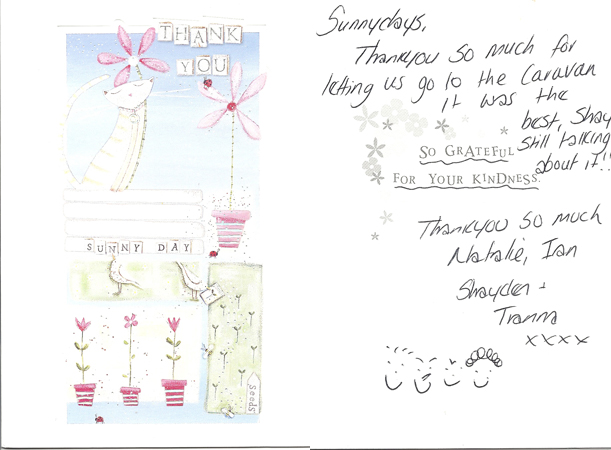 THANK
YOU
SUNNY DAY
seeds
Sunnydays,
Thankyou so much for
letting us go to the Caravan
it was the
best, Shay
still talking
about it!!
SO GRATEFUL
FOR YOUR KINDNESS.
Thankyou so much
Natalie, Ian
Shayden +
Tranna
xxxx